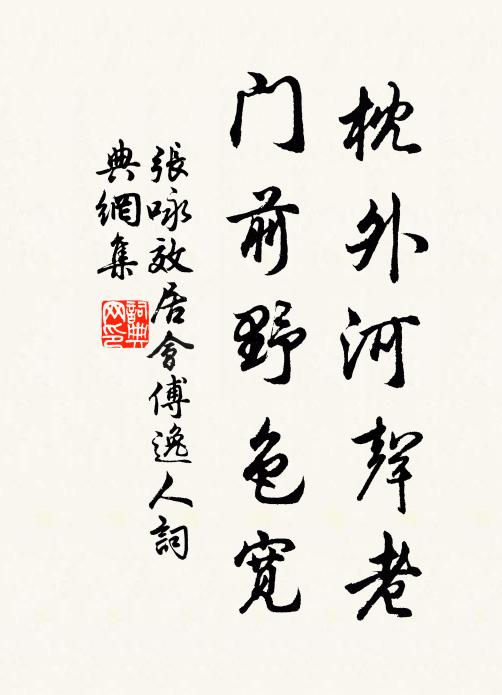 枕外河聲老
门前野色寬
張咏效居會傅逸人詞
典網集
詞典
网印